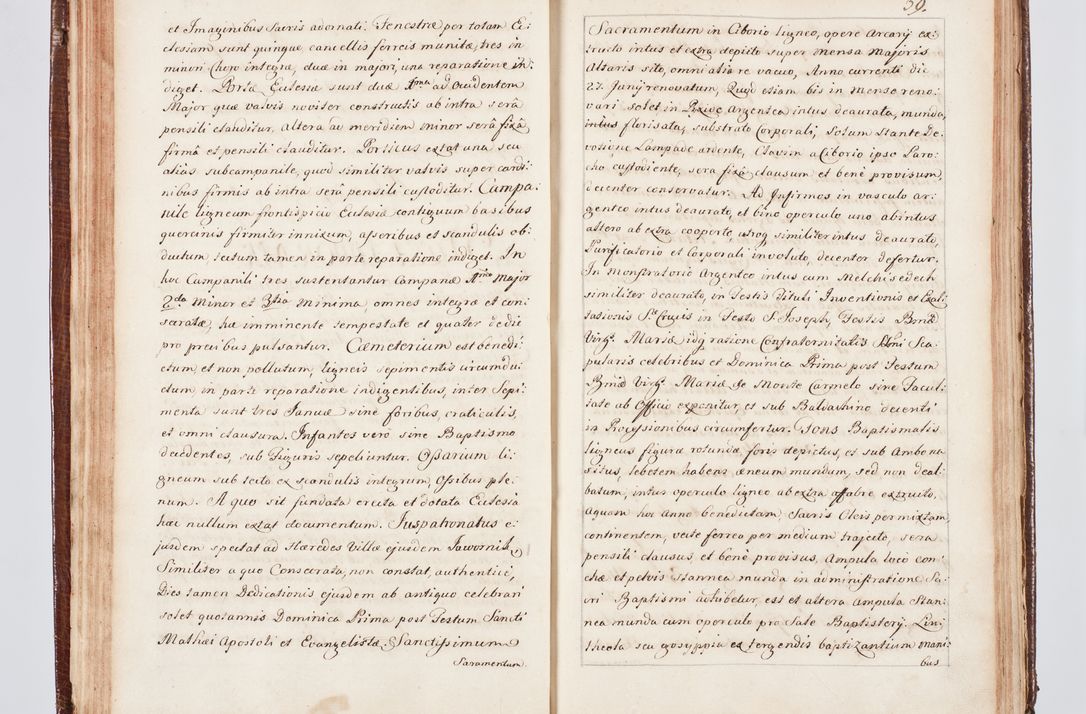 et Imaginibus Sacris adornati. Fenestræ per totam Ec:
clesiam sunt quinque cancellis ferreis munitæ, tres in
minori Choro integræ, duæ in majori, una reparatione in:
diget. Portæ Ecclesiæ sunt duæ 1ma ad Occidentem
Major quæ valvis noviter constructis ab intra serâ
pensili clauditur. Altera ad meridiem minor serâ fixâ
firmâ et pensili clauditur. Porticus extat una seu
alias subcampanile, quod similiter valvis super cardi:
nibus firmis ab intra serâ pensili custoditur. Campa:
nile ligneum frontispicio Ecclesiæ contiguum basibus
quercinis firmiter innixum, asseribus et scandulis ob:
ductum, tectum tamen in parte reparatione indiget. In
hoc Campanili tres sustentantur Campanæ 1ma Major
2da Minor et 3tia Minima, omnes integræ et con:
secratæ, hæ imminente tempestate et quater de die
pro precibus pulsantur. Cæmeterium est benedi:
ctum, et non pollutum, ligneis sepimentis circumdu:
ctum, in parte reparatione indigentibus, inter Sepi:
menta sunt tres Januæ sine foribus, craticulis,
et omni clausura. Infantes verò sine Baptismo
decedentes, sub Figuris sepeliuntur. Ossarium li:
gneum sub tecto ex scandulis integrum, Ossibus ple:
num. A quo sit fundata erecta et dotata Ecclesia
hæc nullum extat documentum. Juspatronatus e:
jusdem spectat ad Hæredes Villæ ejusdem Jawornik,
Similiter a quo Consecrata, non constat, authenticè,
Dies tamen Dedicationis ejusdem ab antiquo celebrari
solet quotannis Dominica Prima post Festum Sancti
Mathæi Apostoli et Evangelistæ. Sanctissimum
Sacramentum
59.
Sacramentum in Ciborio ligneo, opere Arcarij ex:
tructo intus et extra depicto super mensa Majoris
Altaris sito, omni alia re vacuo, Anno currenti die
27. Junij renovatum, Quod etiam bis in Mense reno:
vari solet in Pixide Argentea intus deaurata, munda,
intus florisata, substrato Corporali, totum stante De:
votione Lampade ardente, Clavim a Ciborio ipso Paro:
cho custodiente, sera fixâ clausum et benè provisum,
decenter conservatur. Ad Infirmos in vasculo ar:
genteo intus deaurato, et bino operculo uno abintus
altero ab extra cooperto, utroq similiter intus deaurato,
Purificatorio et Corporali involuto, decenter defertur.
In Monstratorio Argenteo intus cum Melchisedech
similiter deaurato, in Festis Tituli Inventionis et Exal:
tationis Ste Crucis in Festo S. Joseph, Festis Bmæ
Virgs. Mariæ idq ratione Confraternitatis Smi Sca:
pularis celebribus et Dominica Prima post Festum
Bmæ Virgs. Mariæ de Monte Carmelo sine Facul:
tate ab Officio exponitur, et sub Baldachino decenti
in Processionibus circumfertur. Fons Baptismalis
ligneus figuræ rotundæ foris depictus, et sub Ambona
situs, lebetem habens æneum mundum, sed non deal:
batum, intus operculo ligneo ab extra affabre extructo,
Aquam hoc anno benedictam, Sacris Oleis permixtam
continentem, vecte ferreo per medium trajecto, sera
pensili clausus, et benè provisus, Ampula loco con:
chæ et pelvis stannea munda in administratione Sa:
cri Baptismi adhibetur, est et altera Ampula Stan:
nea munda cum operculo pro Sale Baptisterij. Lin:
theola seu gossyppia ex tergendis baptizantium mani:
bus